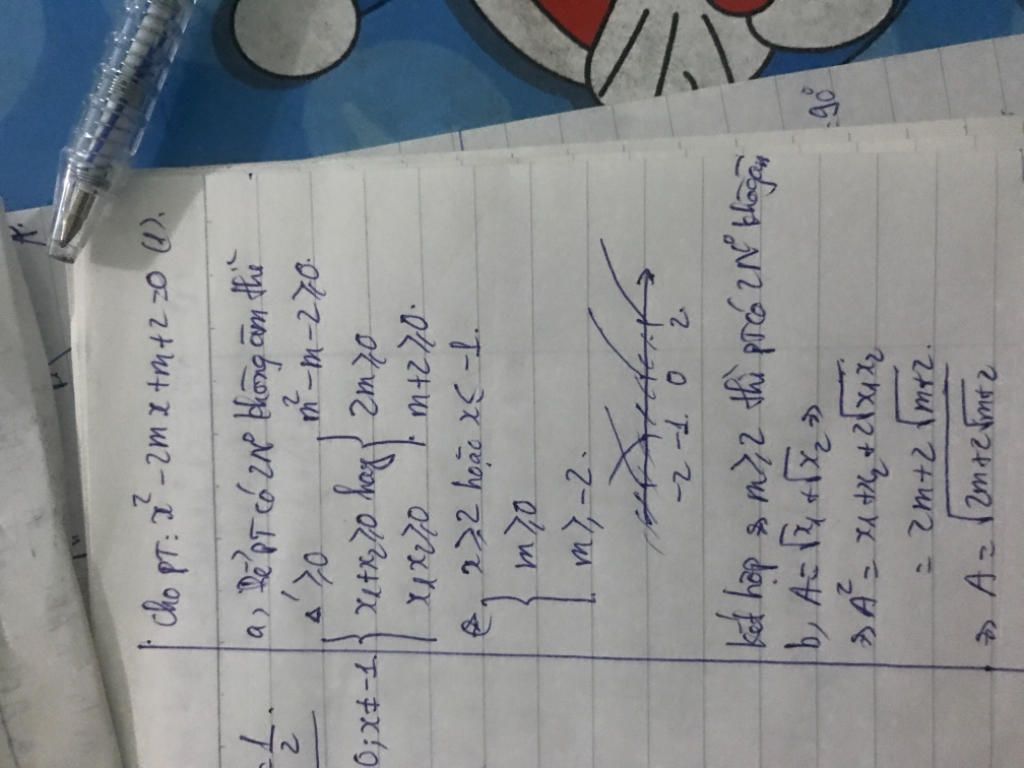 Cho pt: x² - 2mx + m + 2 = 0 (1).
a, Để pt có 2N⁰ không âm thì
Δ' ≥ 0 m² - m - 2 ≥ 0.
x₁ + x₂ ≥ 0 hay 2m ≥ 0
x₁x₂ ≥ 0 m + 2 ≥ 0.
x ≥ 2 hoặc x ≤ -1.
m ≥ 0
m ≥ -2.
-2 -1 0 2
kết hợp ⇒ m ≥ 2 thì pt có 2N⁰ không âm
b, A = √x₁ + √x₂ ⇒
⇒ A² = x₁ + x₂ + 2√x₁x₂
= 2m + 2√m+2.
⇒ A = √2m+2√m+2
= 1/2
0; x ≠ -1
= 90°